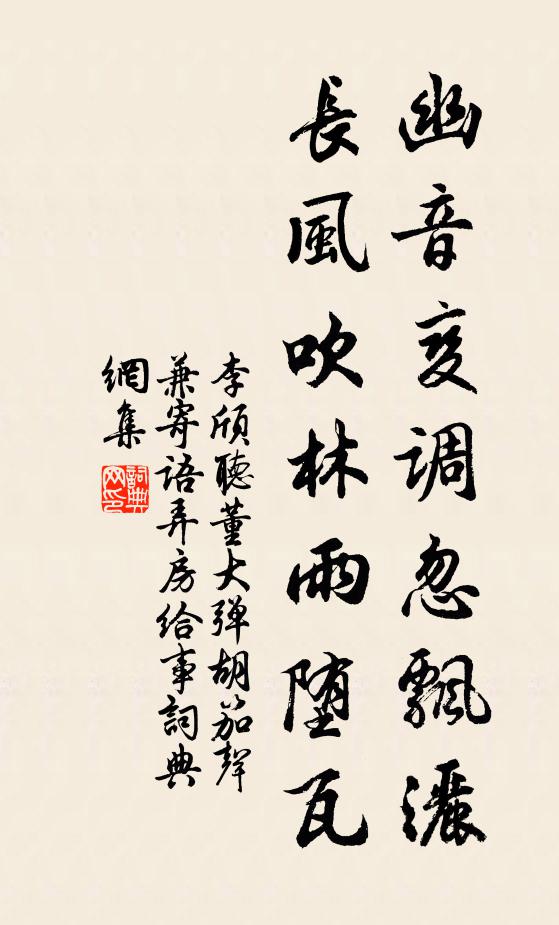 幽音变调忽飄灑
長風吹林雨堕瓦
李頎聽董大弹胡笳聲
兼寄語弄房給事詞典
網集
詞典網印